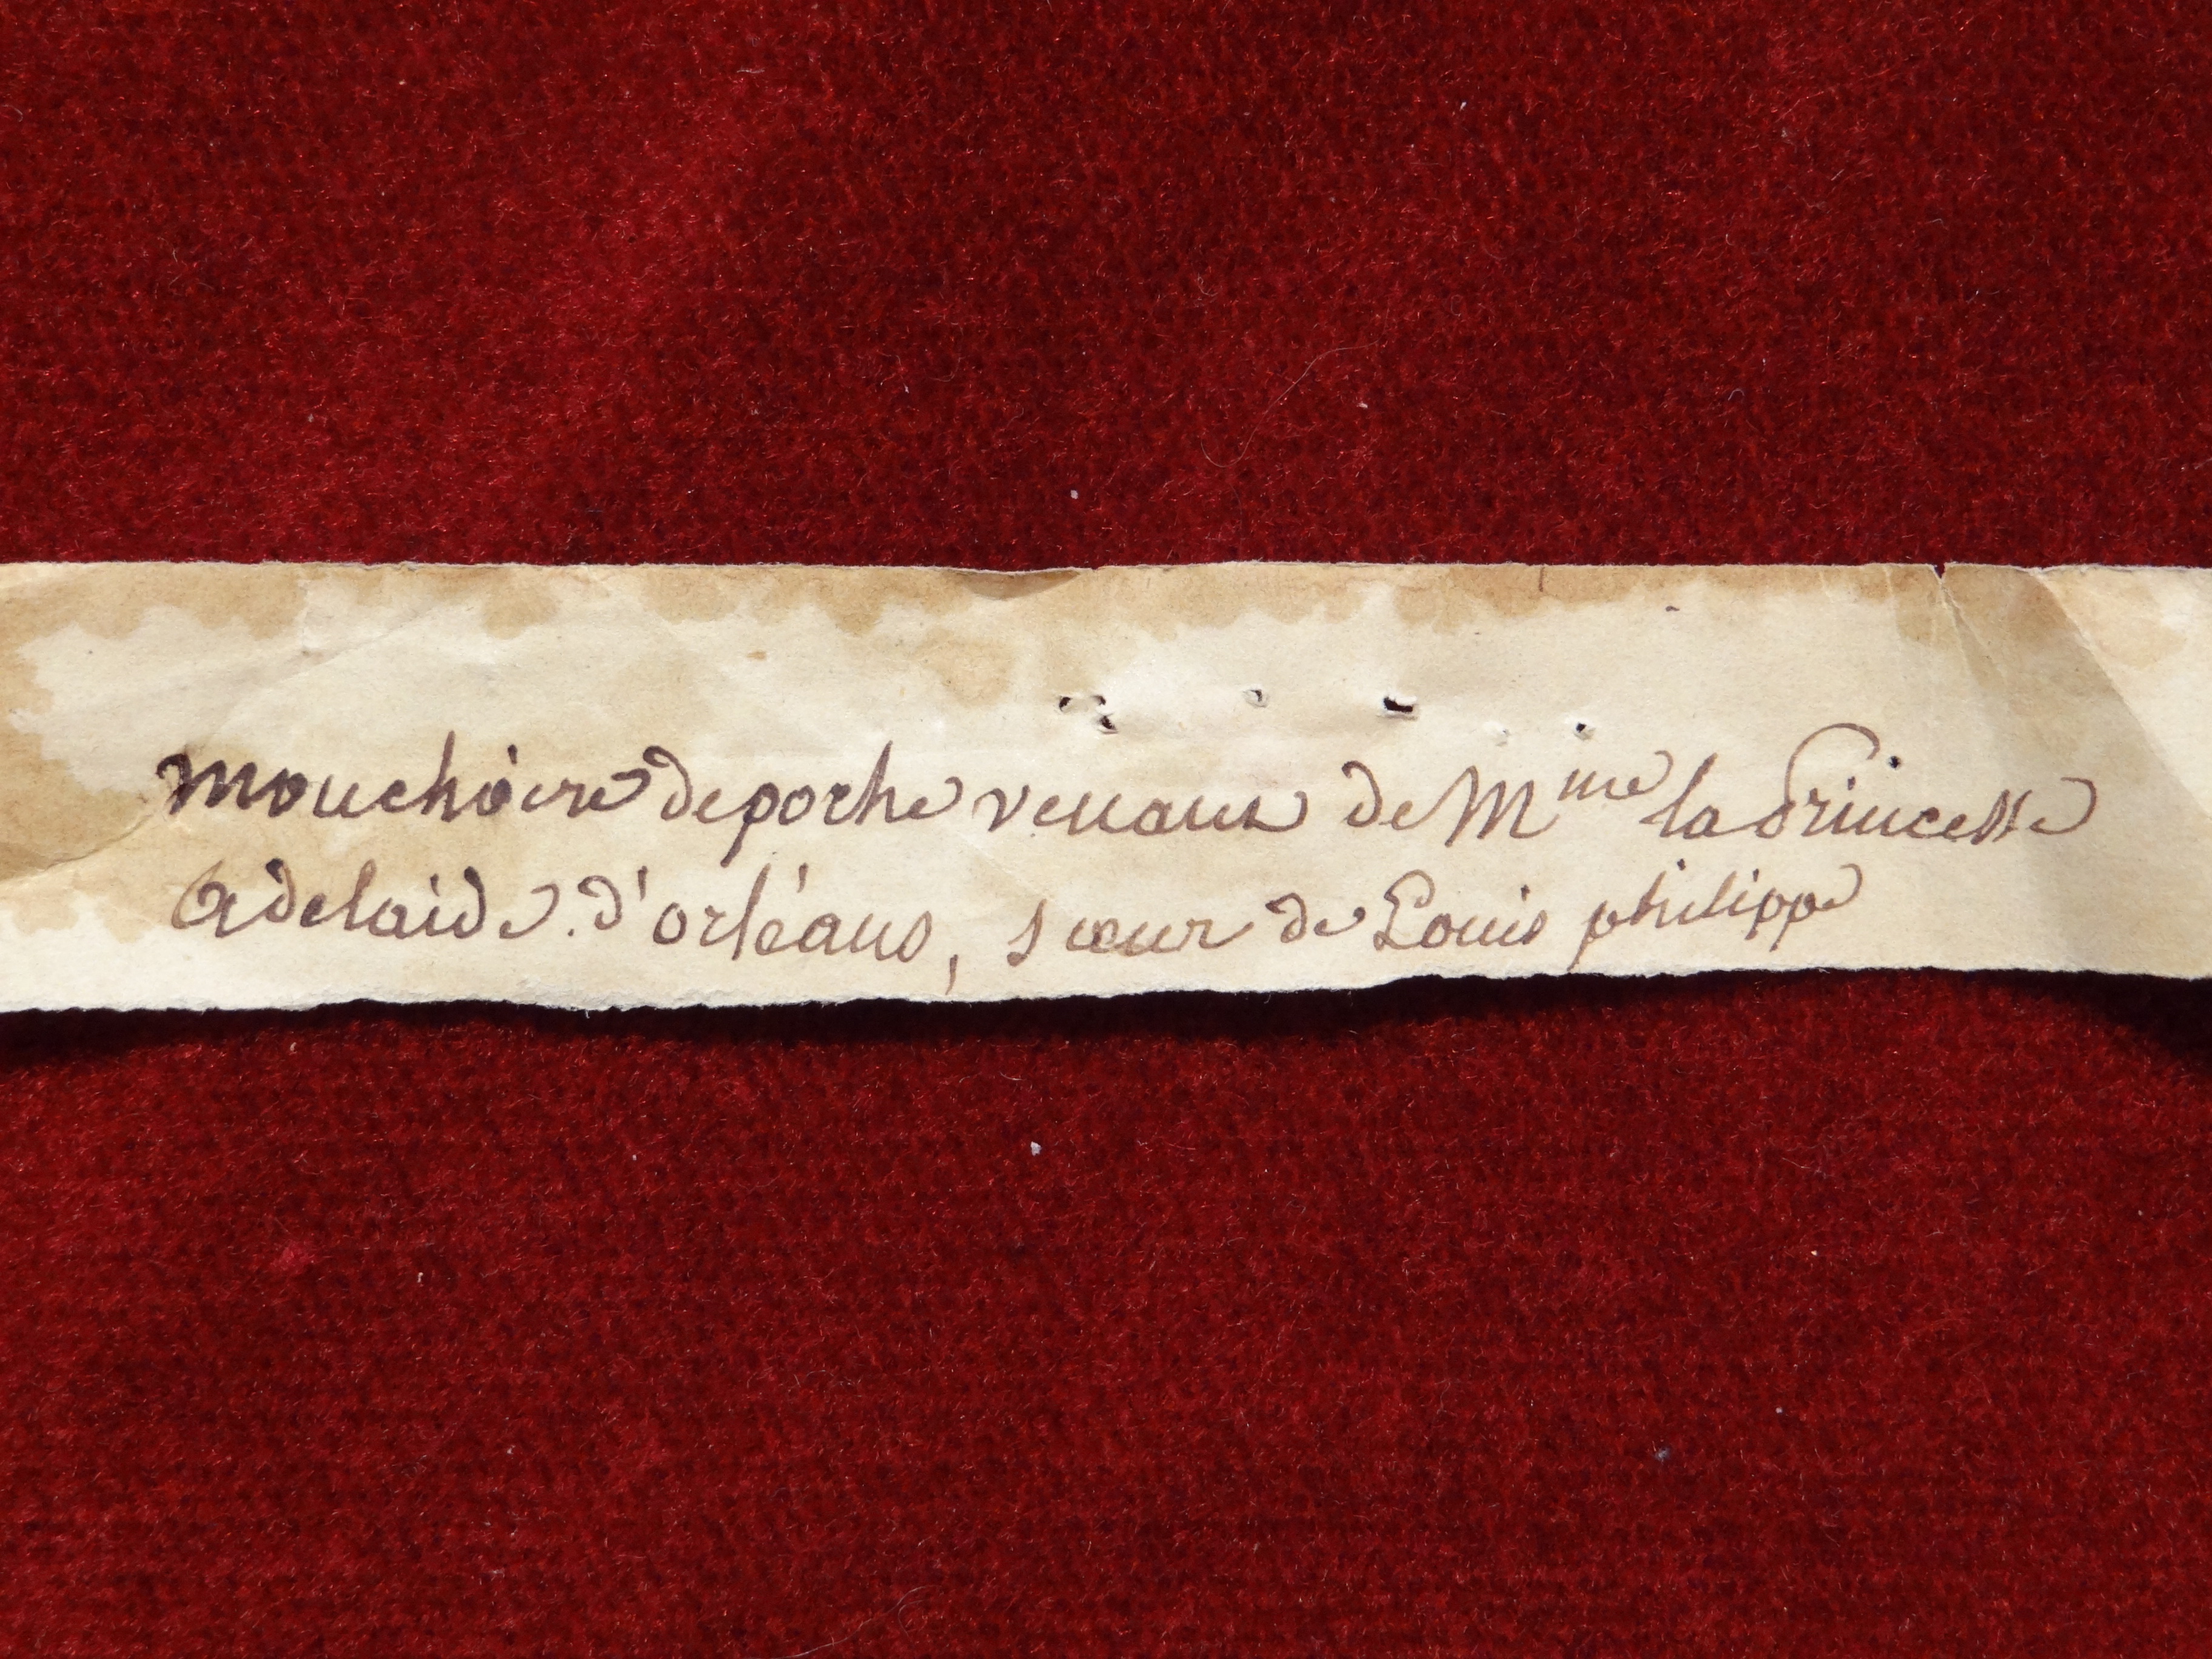 mouchoire de poche venant de Mme la Princesse
Adelaide. d'orléans, sœur de Louis philippe